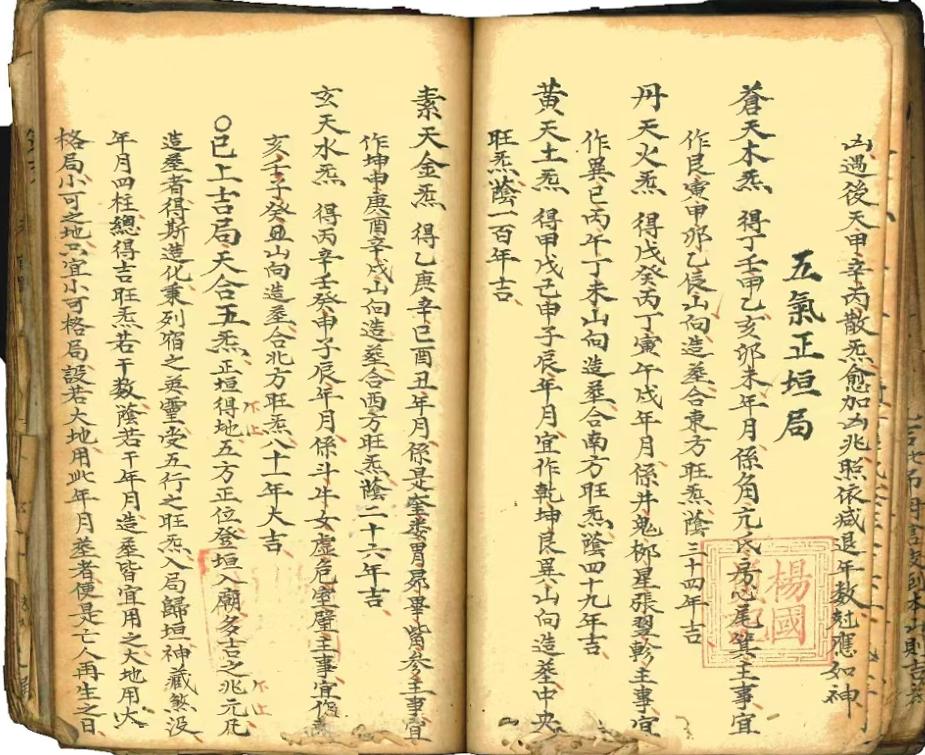 凶遇後天甲辛丙散炁愈加凶兆照依減退年数尅應如神
五氣正垣局
蒼天木炁 得丁壬甲乙亥卯未年月係角亢氐房心尾箕主事宜
作艮寅甲卯乙辰山向造塟合東方旺炁蔭三十四年吉
丹天火炁 得戊癸丙丁寅午戌年月係井鬼柳星張翌軫主事宜
作巽巳丙午丁未山向造塟合南方旺炁蔭四十九年吉
黄天土炁 得甲戊己申子辰年月宜作乾坤艮巽山向造塟中央
旺炁蔭一百年吉
素天金炁 得乙庚辛巳酉丑年月係是奎婁胃昴畢觜參主事宜
作坤申庚酉辛戌山向造塟合西方旺炁蔭二十六年吉
玄天水炁 得丙辛壬癸申子辰年月係斗牛女虛危室壁主事宜作
亥壬子癸丑山向造塟合北方旺炁八十一年大吉
○已上吉局天合五炁正垣得地五方正位登垣入廟多吉之兆元凡
造塟者得斯造化秉列宿之英靈受五行之旺炁入局歸垣神藏煞没
年月四柱總得吉旺炁若干数蔭若干年月造塟皆宜用之大地用大
格局小可之地只宜小可格局設若大地用此年月塟者便是亡人再生之日
楊國